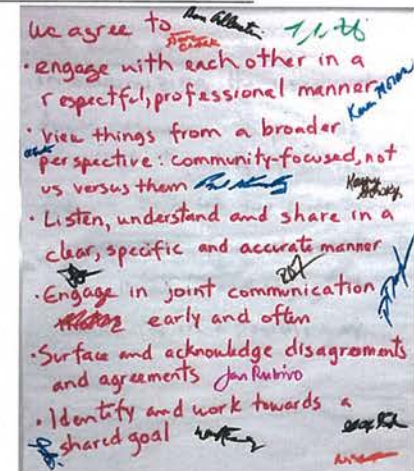 we agree to
• engage with each other in a
respectful, professional manner
Karen Moran
• View things from a broader
perspective: community-focused, not
us versus them
• Listen, understand and share in a
clear, specific and accurate manner
• Engage in joint communication
early and often
• Surface and acknowledge disagreements
and agreements Jan Rubino
• Identify and work towards a
shared goal